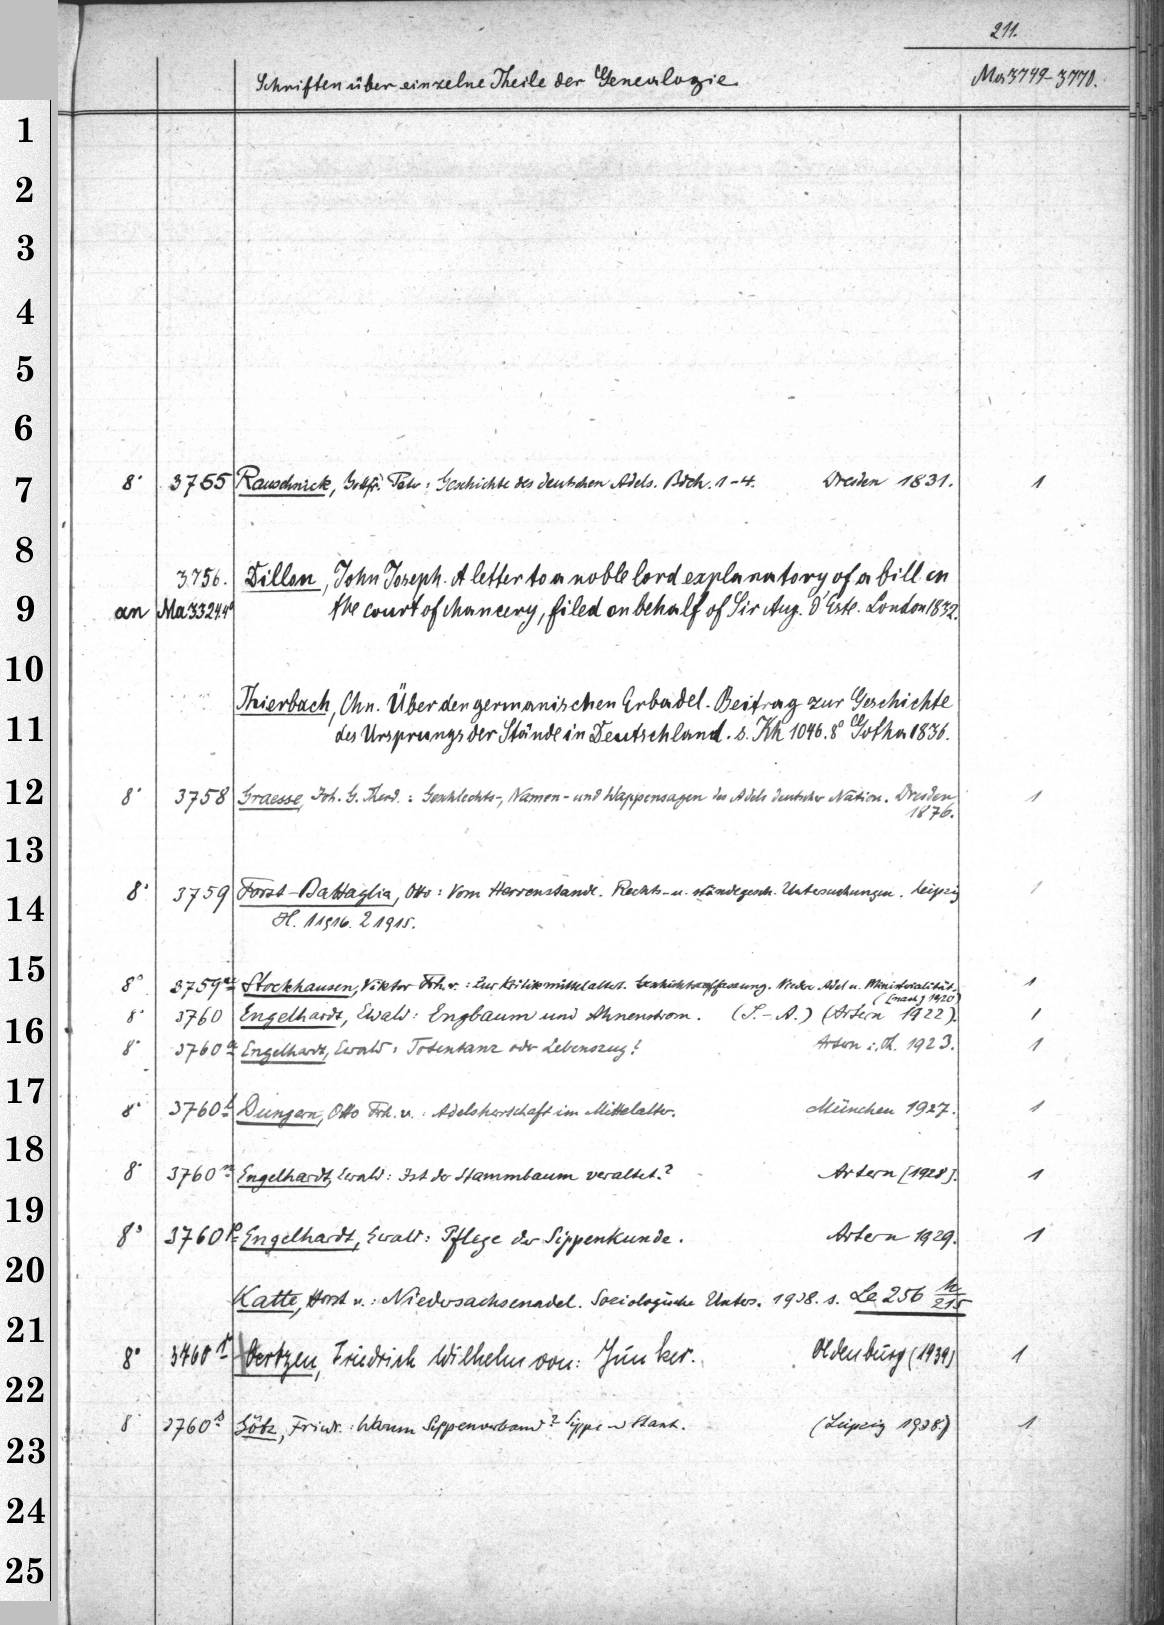 211.
Schriften über einzelne Theile der Genealogie Ma 3749-3770.
1
2
3
4
5
6
7
8
9
10
11
12
13
14
15
16
17
18
19
20
21
22
23
24
25
8° 3755 Rauschnick, Gottfr. Peter: Geschichte des deutschen Adels. Bdch. 1-4. Dresden 1831. 1
3756. Dillon, John Joseph. A letter to a noble lord explanatory of a bill in
an Ma 3324.4° the court of chancery, filed on behalf of Sir Aug. d'Este. London 1832.
Thierbach, Chn. Über den germanischen Erbadel. Beitrag zur Geschichte
des Ursprungs der Stände in Deutschland. s. Kh 1046. 8° Gotha 1836.
8° 3758 Graesse, Joh. G. Theod.: Geschlechts-, Namen- und Wappensagen des Adels deutscher Nation. Dresden 1
1876.
8° 3759 Forst-Battaglia, Otto: Vom Herrenstande. Rechts- u. ständegesch. Untersuchungen. Leipzig 1
H. 1 1916. 2 1915.
8° 3759 Stockhausen, Viktor Frh. v.: Zur Kritik mittelalterl. Geschichtsauffassung. Nieder. Adel u. Ministerialität. 1
(nach 1920)
8° 3760 Engelhardt, Ewald: Engbaum und Ahnenstrom. (S.-A.) (Artern 1922). 1
8° 3760 Engelhardt, Ewald: Totentanz oder Lebenszug? Artern i. Th. 1923. 1
8° 3760 Dungern, Otto Frh. v.: Adelsherrschaft im Mittelalter. München 1927. 1
8° 3760 Engelhardt, Ewald: Ist der Stammbaum veraltet? Artern [1928]. 1
8° 3760 p Engelhardt, Ewald: Pflege der Sippenkunde. Artern 1929. 1
Katte, Horst v.: Niedersachsenadel. Sociologische Unters. 1938. s. Le 256 215
8° 3460 r Oertzen, Friedrich Wilhelm von: Junker. Oldenburg (1939) 1
8° 3760 s Götz, Friedr.: Warum Sippenverband? Sippe u Staat. (Leipzig 1938.) 1